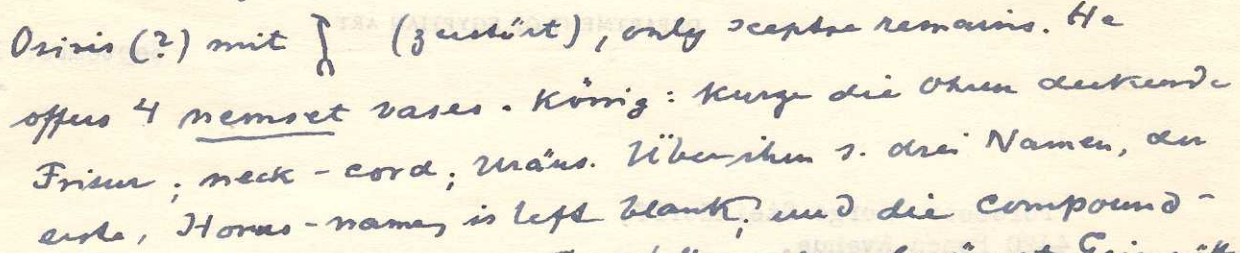 Osiris (?) mit (zerstört), only sceptre remains. He
offers 4 nemset vases. König: kurze die Ohren deckende
Frisur; neck-cord; Uräus. Über ihm s. drei Namen, der
erste, Horus-name, is left blank, und die compound-